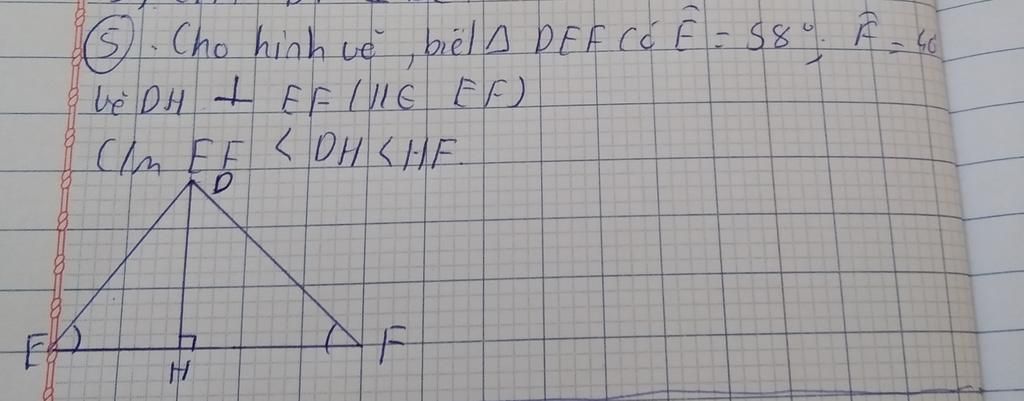 ⑤. Cho hình vẽ, biết Δ DEF có Ê = 58°; F̂ = 40
Vẽ DH ⊥ EF (H ∈ EF)
C/m EF < DH < HF.
D
E F
H